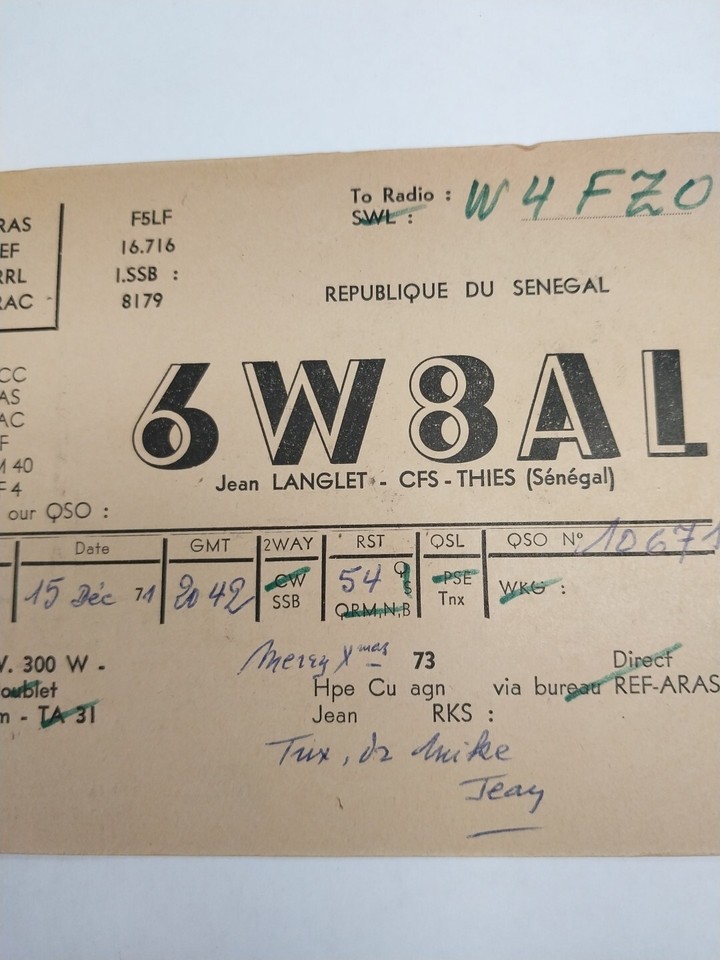 To Radio : W4FZO
RAS F5LF SWL :
EF 16.716
RRL I.SSB :
RAC 8179 REPUBLIQUE DU SENEGAL
6W8AL
CC
AS
AC
F
M 40
F 4
Jean LANGLET - CFS - THIES (Sénégal)
our QSO :
Date GMT 2WAY RST QSL QSO N° 10671
15 Déc 71 2042 CW 54 PSE WKG :
SSB QRM,N,B Tnx
V. 300 W - Merry Xmas 73 Direct
oublet Hpe Cu agn via bureau REF-ARAS
m - TA 31 Jean RKS :
Tnx, dr Mike
Jean